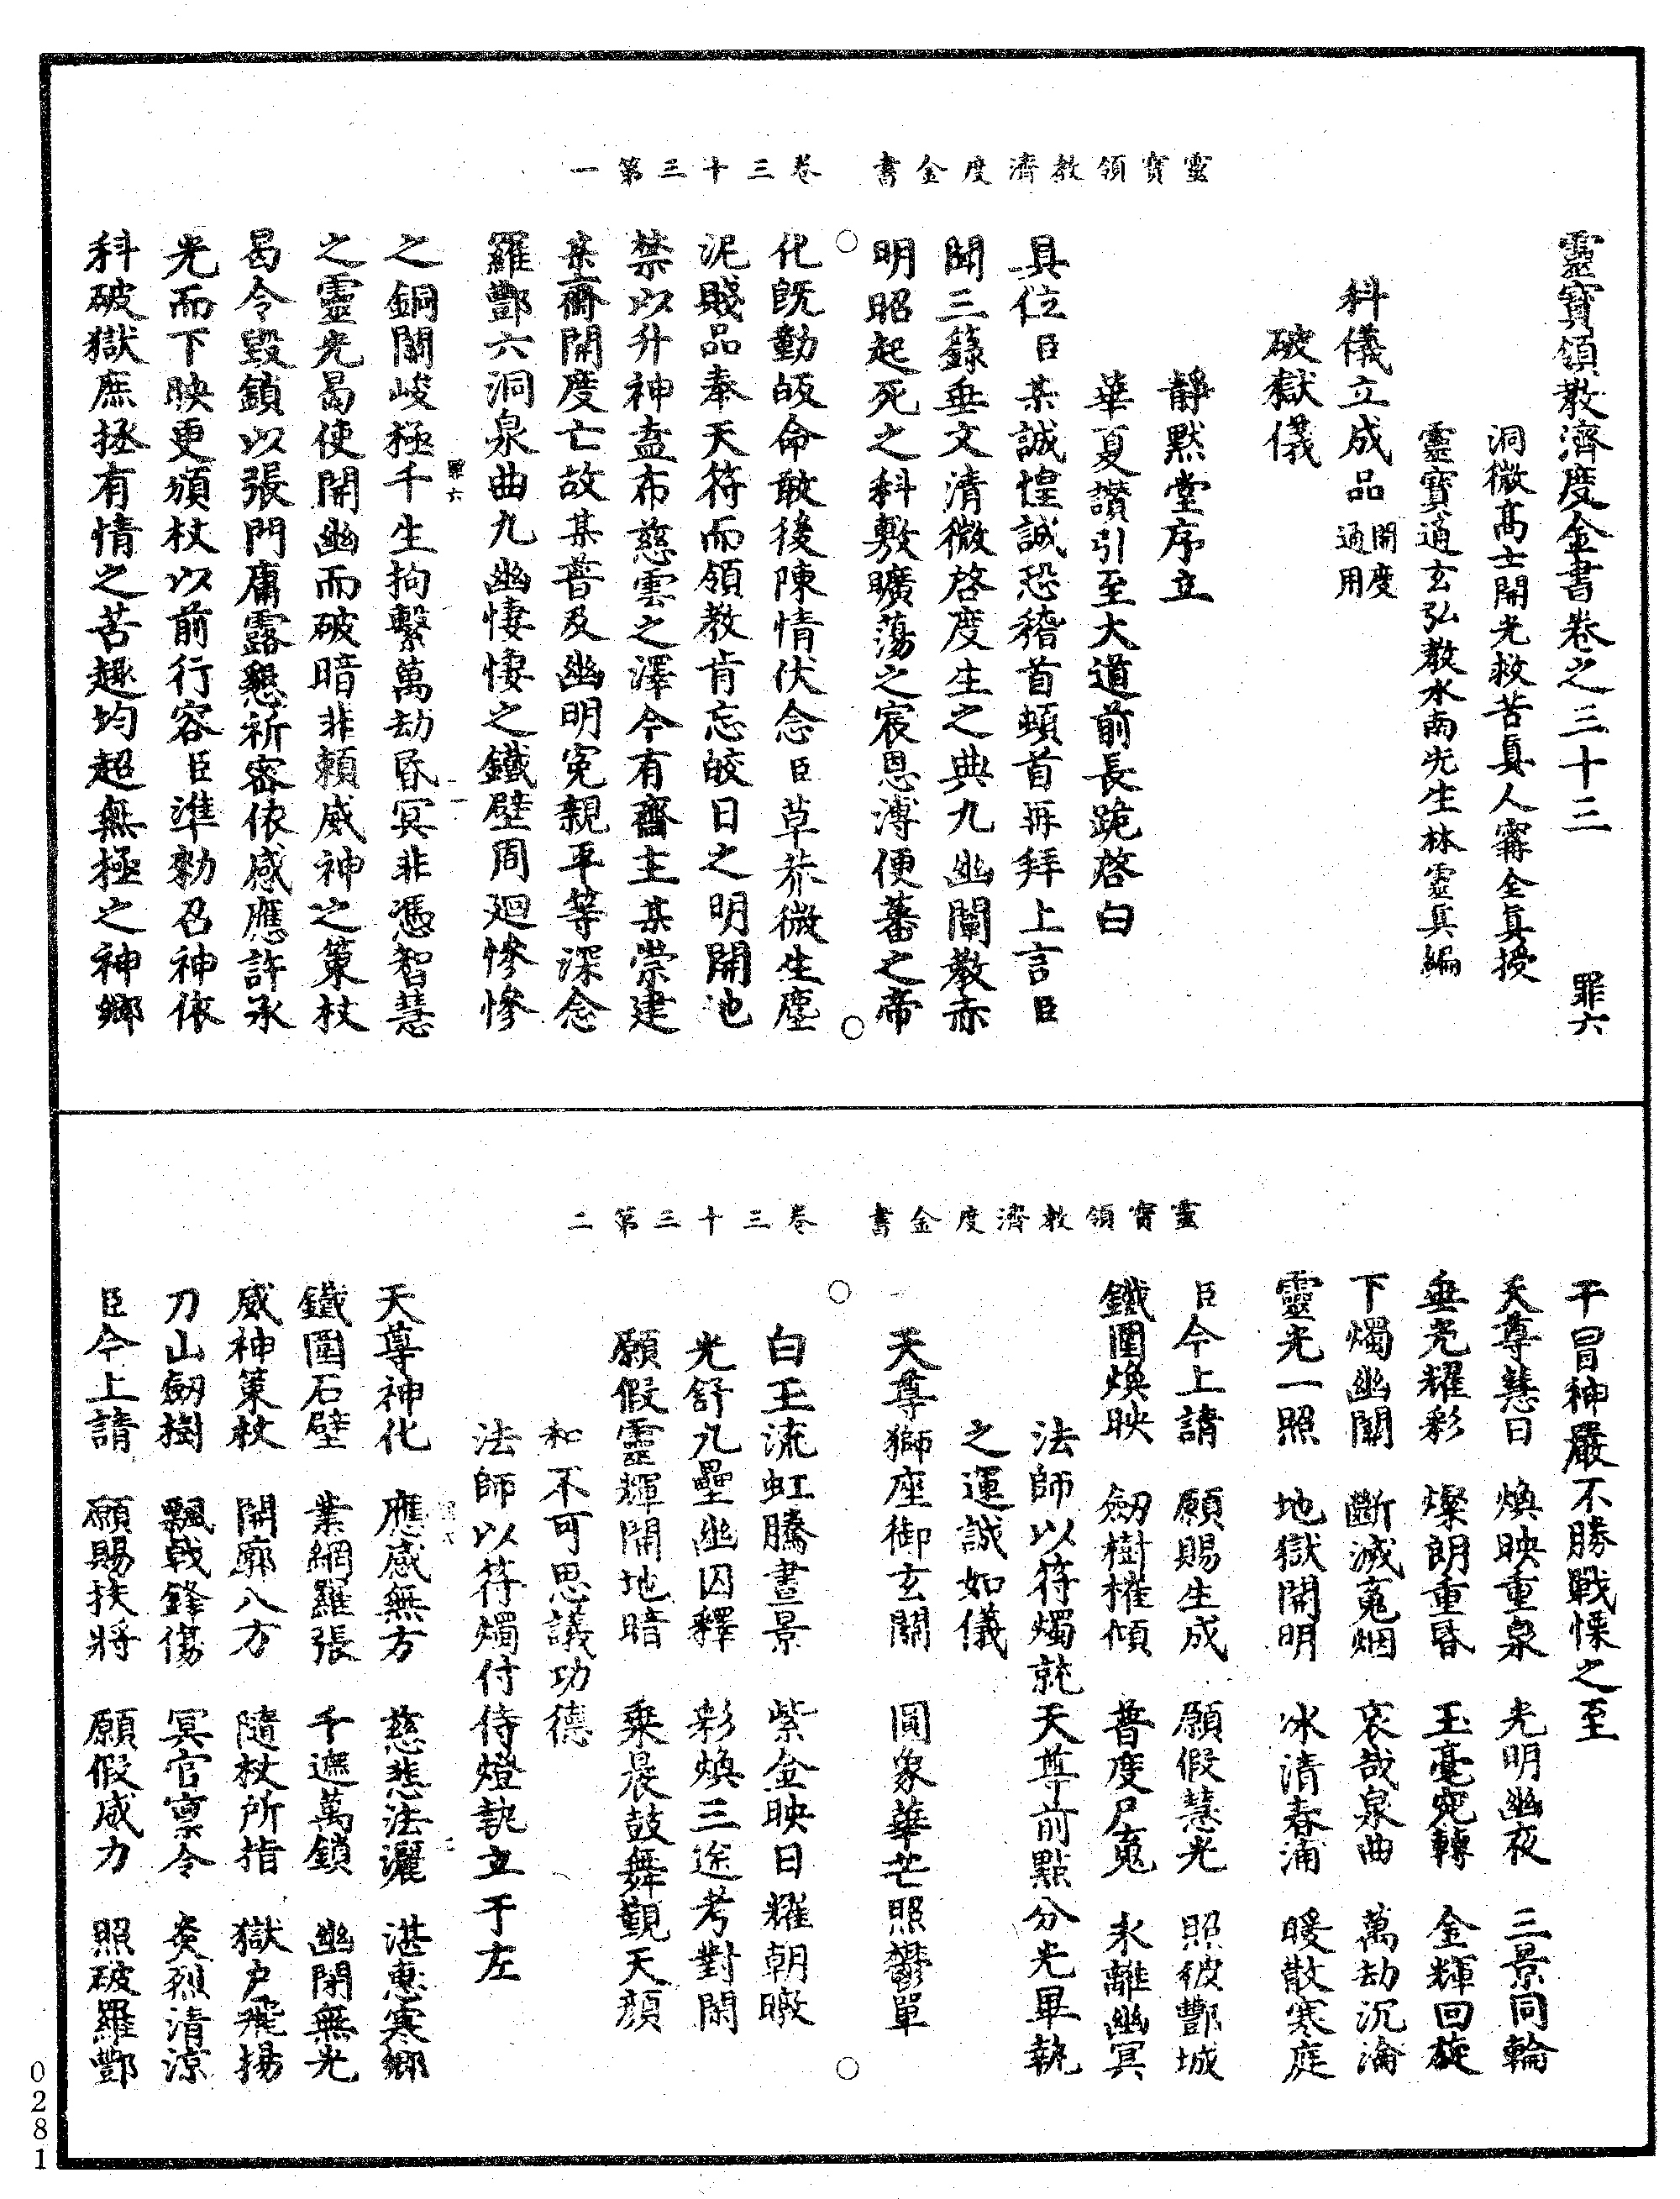 靈寶領教濟度金書　卷三十三第一
靈寶領教濟度金書卷之三十三　罪六
洞微高士開光救苦真人甯全真授
靈寶通玄弘教水南先生林靈真編
科儀立成品開度通用
破獄儀
靜默堂序立
華夏讚引至大道前長跪啓白
具位臣某誠惶誠恐稽首頓首再拜上言臣
聞三籙垂文清微啓度生之典九幽闡教赤
明昭起死之科敷曠蕩之宸恩溥便蕃之帝
化既勤皈命敢後陳情伏念臣草茶微生塵
泥賤品奉天符而領教肯忘皎日之明開地
禁以升神盍布慈雲之澤今有齋主某崇建
某齋開度亡故某普及幽明冤親平等深念
羅酆六洞泉曲九幽悽悽之鐵壁周廻慘慘
之銅關峻極千生拘繫萬劫昏冥非憑智慧
之靈光曷使開幽而破暗非賴威神之策杖
曷令毀鎖以張門庸露懇祈密依感應許永
光而下映更頒杖以前行容臣準勑召神依
科破獄庶拯有情之苦趣均超無極之神鄉
靈寶領教濟度金書　卷三十三第二
干冒神嚴不勝戰慄之至
天尊慧日　煥映重泉　光明幽夜　三景同輪
垂光耀彩　燦朗重昏　玉毫宛轉　金輝回旋
下燭幽關　斷滅冤烟　哀哉泉曲　萬劫沉淪
靈光一照　地獄開明　冰清春涌　暖散寒庭
臣今上請　願賜生成　願假慧光　照彼酆城
鐵圍煥映　劒樹摧傾　普度尸𩲸　永離幽冥
法師以符燭就天尊前點分光畢執
之運誠如儀
天尊獅座御玄關　圓象華芒照鬱單
白玉流虹騰晝景　紫金映日耀朝暾
光舒九壘幽囚釋　彩煥三途考對閑
願假靈輝開地暗　乘晨鼓舞覲天顏
和不可思議功德
法師以符燭付侍燈執立于左
天尊神化　應感無方　慈悲法灑　湛惠寒鄉
鐵圍石壁　業網羅張　千遮萬鎖　幽閉無光
威神策杖　開廓八方　隨杖所指　獄戶飛揚
刀山劒樹　飄戟鋒傷　冥官禀令　炎烈清涼
臣今上請　願賜扶將　願假威力　照破羅酆
0281